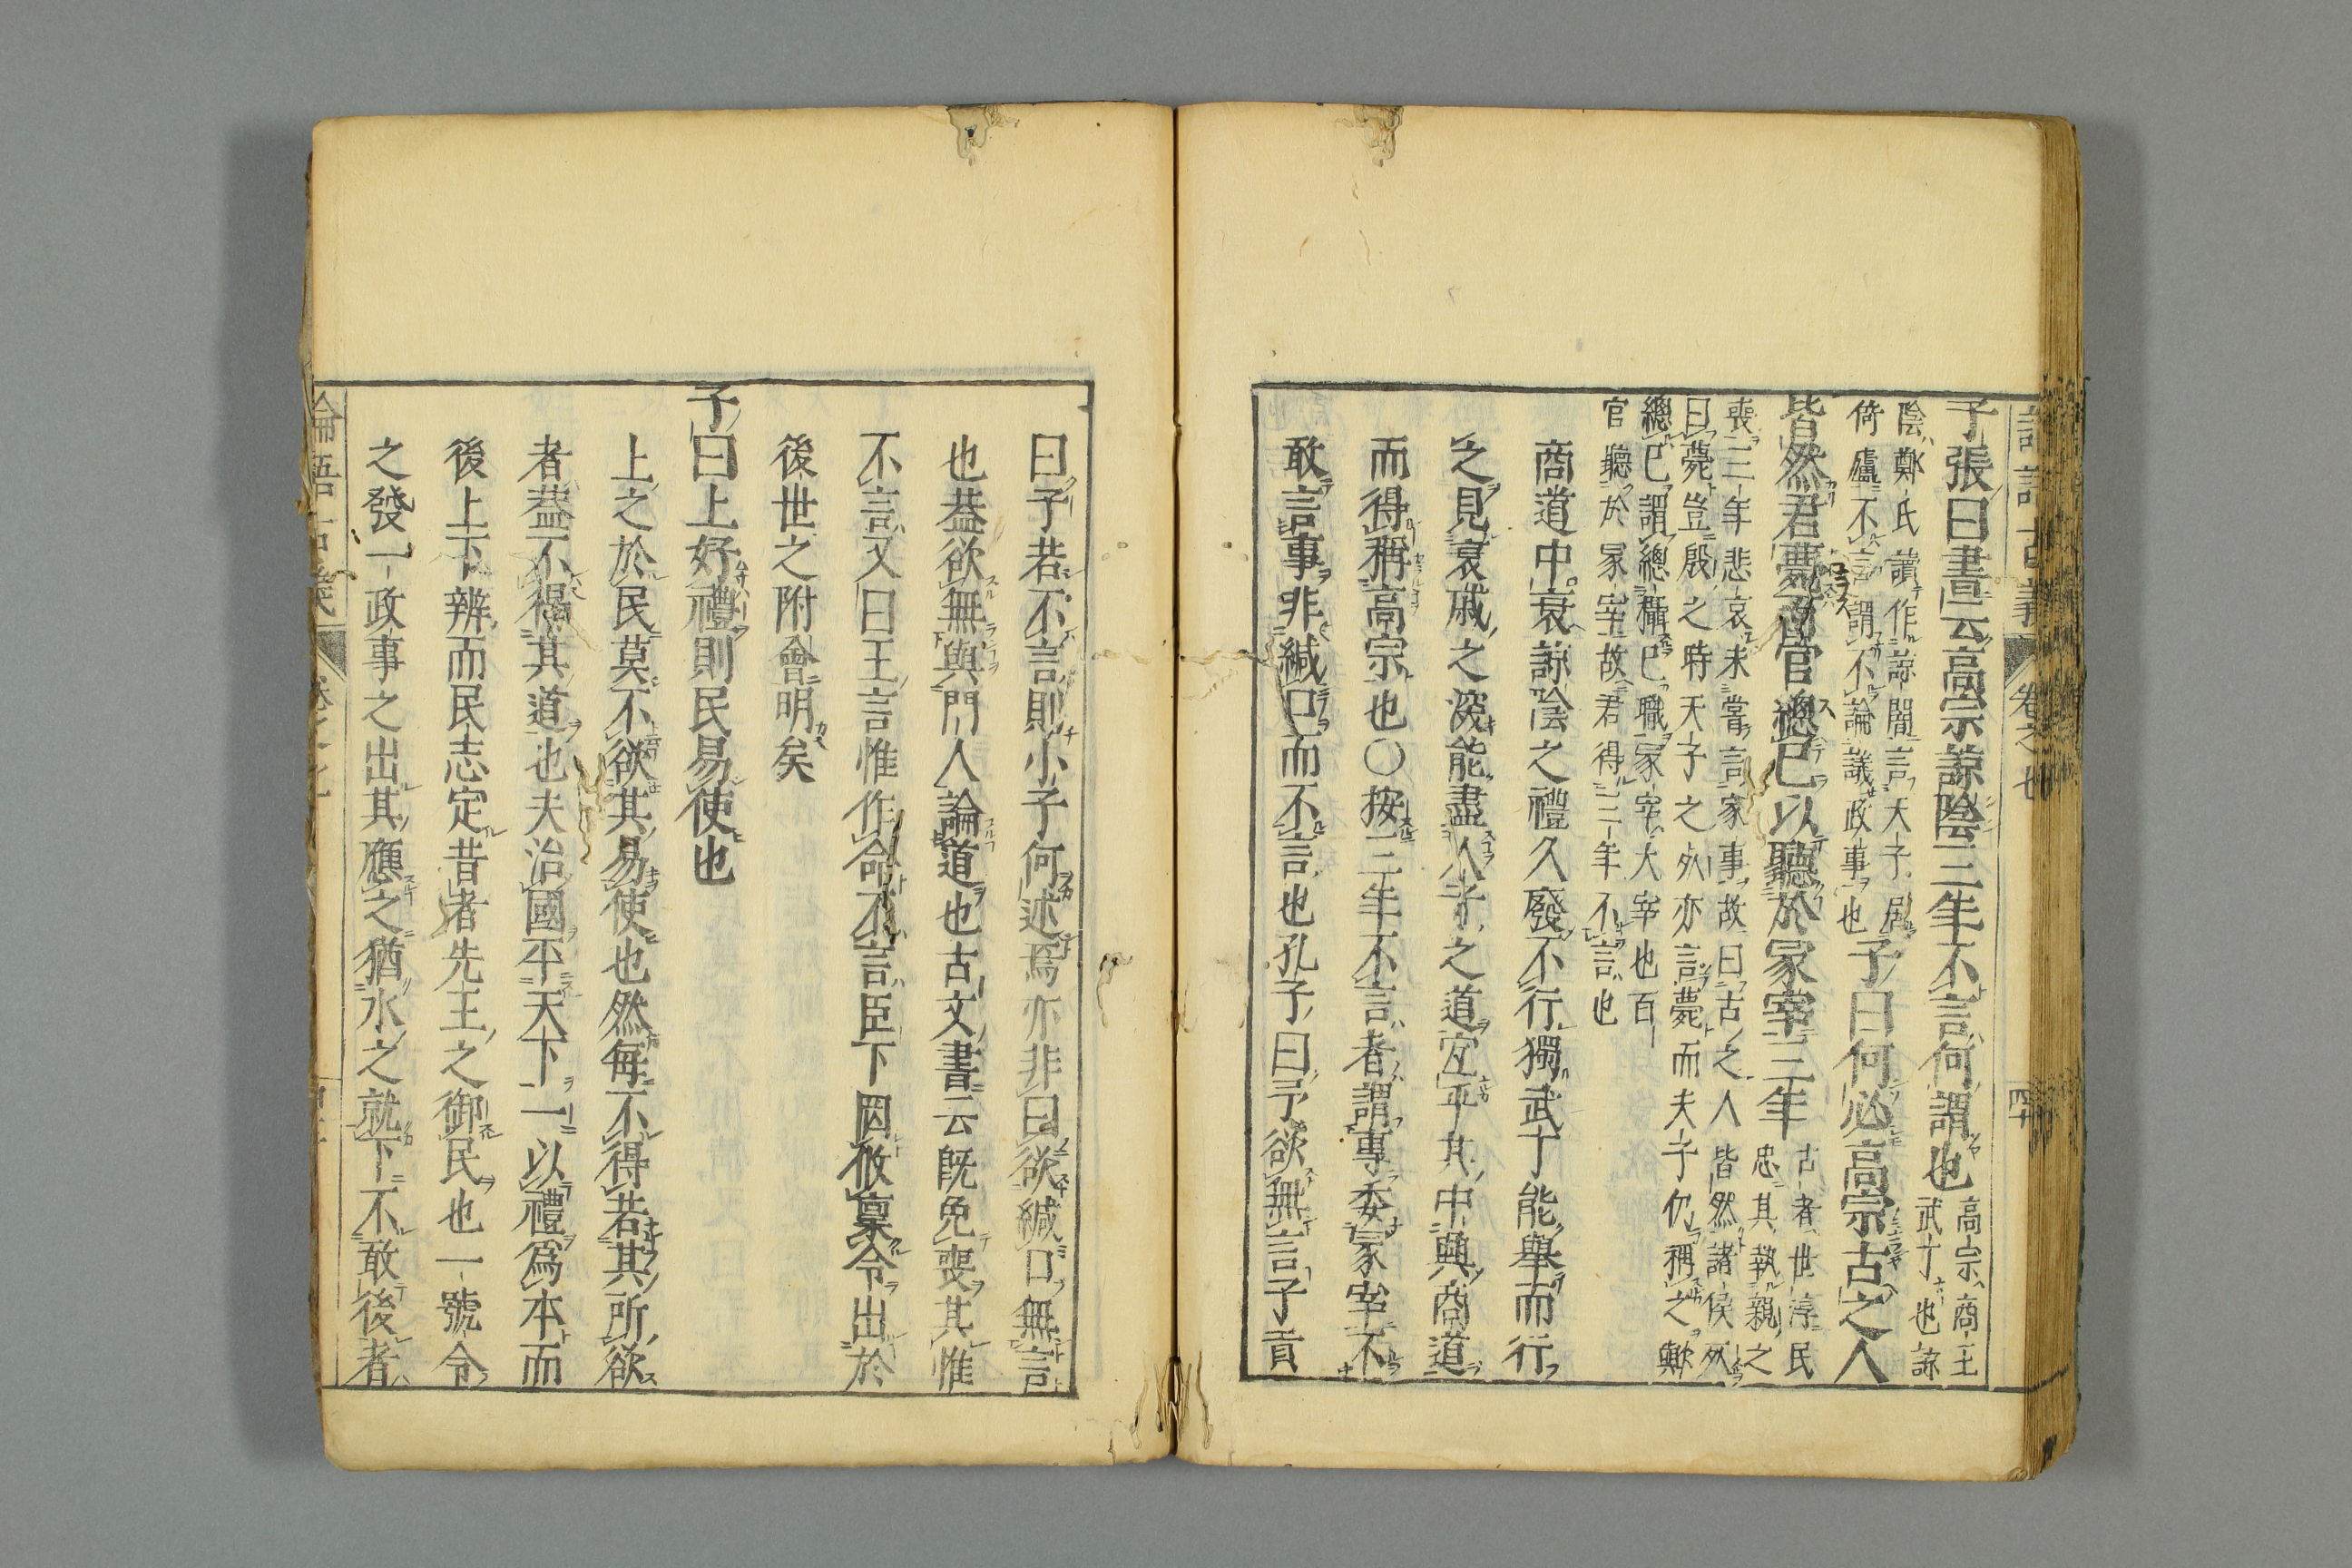 子張曰書云高宗諒陰三年不言何謂也 高宗商王
武丁也諒
陰鄭氏讀作諒闇言天子居
倚廬不言謂不論議政事也 子曰何必高宗古之人
皆然君薨百官總己以聽於冢宰三年 古者世淳民
忠其執親之
喪三年悲哀未嘗言家事故曰古之人皆然諸侯死
曰薨豈殷之時天子之死亦言薨而夫子仍稱之歟
總己謂總攝己職冢宰大宰也百
官聽於冢宰故君得三年不言也
商道中衰諒陰之禮久廢不行獨武丁能舉而行
之見哀戚之深能盡人子之道宜乎其中興商道
而得稱高宗也〇按三年不言者謂專委冢宰不
敢言事非緘口而不言也孔子曰予欲無言子貢
曰子若不言則小子何述焉亦非曰欲緘口無言
也蓋欲無與門人論道也古文書云既免喪其惟
不言又曰王言惟作命不言臣下罔攸稟令出於
後世之附會明矣
子曰上好禮則民易使也
上之於民莫不欲其易使也然每不得若其所欲
者蓋不得其道也夫治國平天下一以禮爲本而
後上下辨而民志定昔者先王之御民也一號令
之發一政事之出其應之猶水之就下不敢後者
論語古義 卷之七